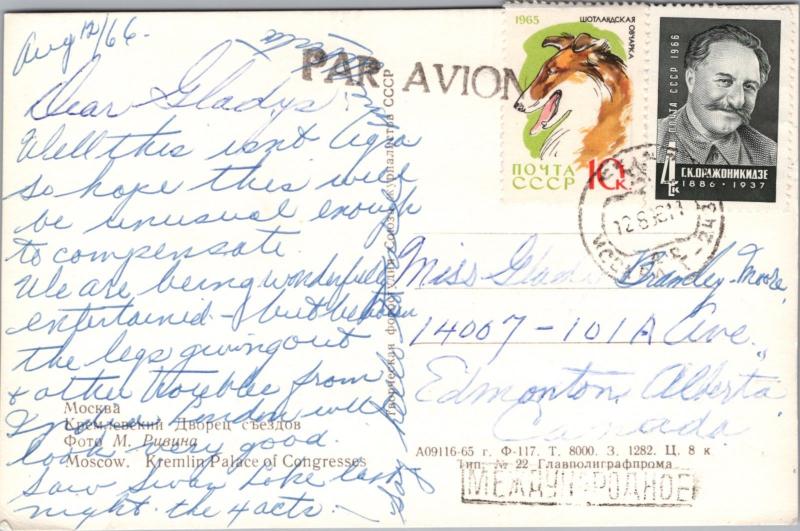 Aug 12/66
PAR AVION
Dear Gladys
Well this isn't Agra
so hope this will
be unusual enough
to compensate.
We are being wonderfully
entertained - but between
the legs giving out
& other troubles from
London will
look very good.
Saw Swan Lake last
night. the 4 acts.
Москва
Кремлевский Дворец съездов
Фото М. Ривина
Moscow. Kremlin Palace of Congresses
Творческая фотостудия Союза журналистов СССР
1965
ШОТЛАНДСКАЯ ОВЧАРКА
ПОЧТА
СССР
10 к.
ПОЧТА СССР 1966
4 к
Г.К.ОРДЖОНИКИДЗЕ
1886 • 1937
Miss Gladys Brandly-Moore,
14007-101A Ave.,
Edmonton, Alberta
Canada
А09116-65 г. Ф-117. Т. 8000. З. 1282. Ц. 8 к.
Тип. № 22 Главполиграфпрома
МЕЖДУНАРОДНОЕ